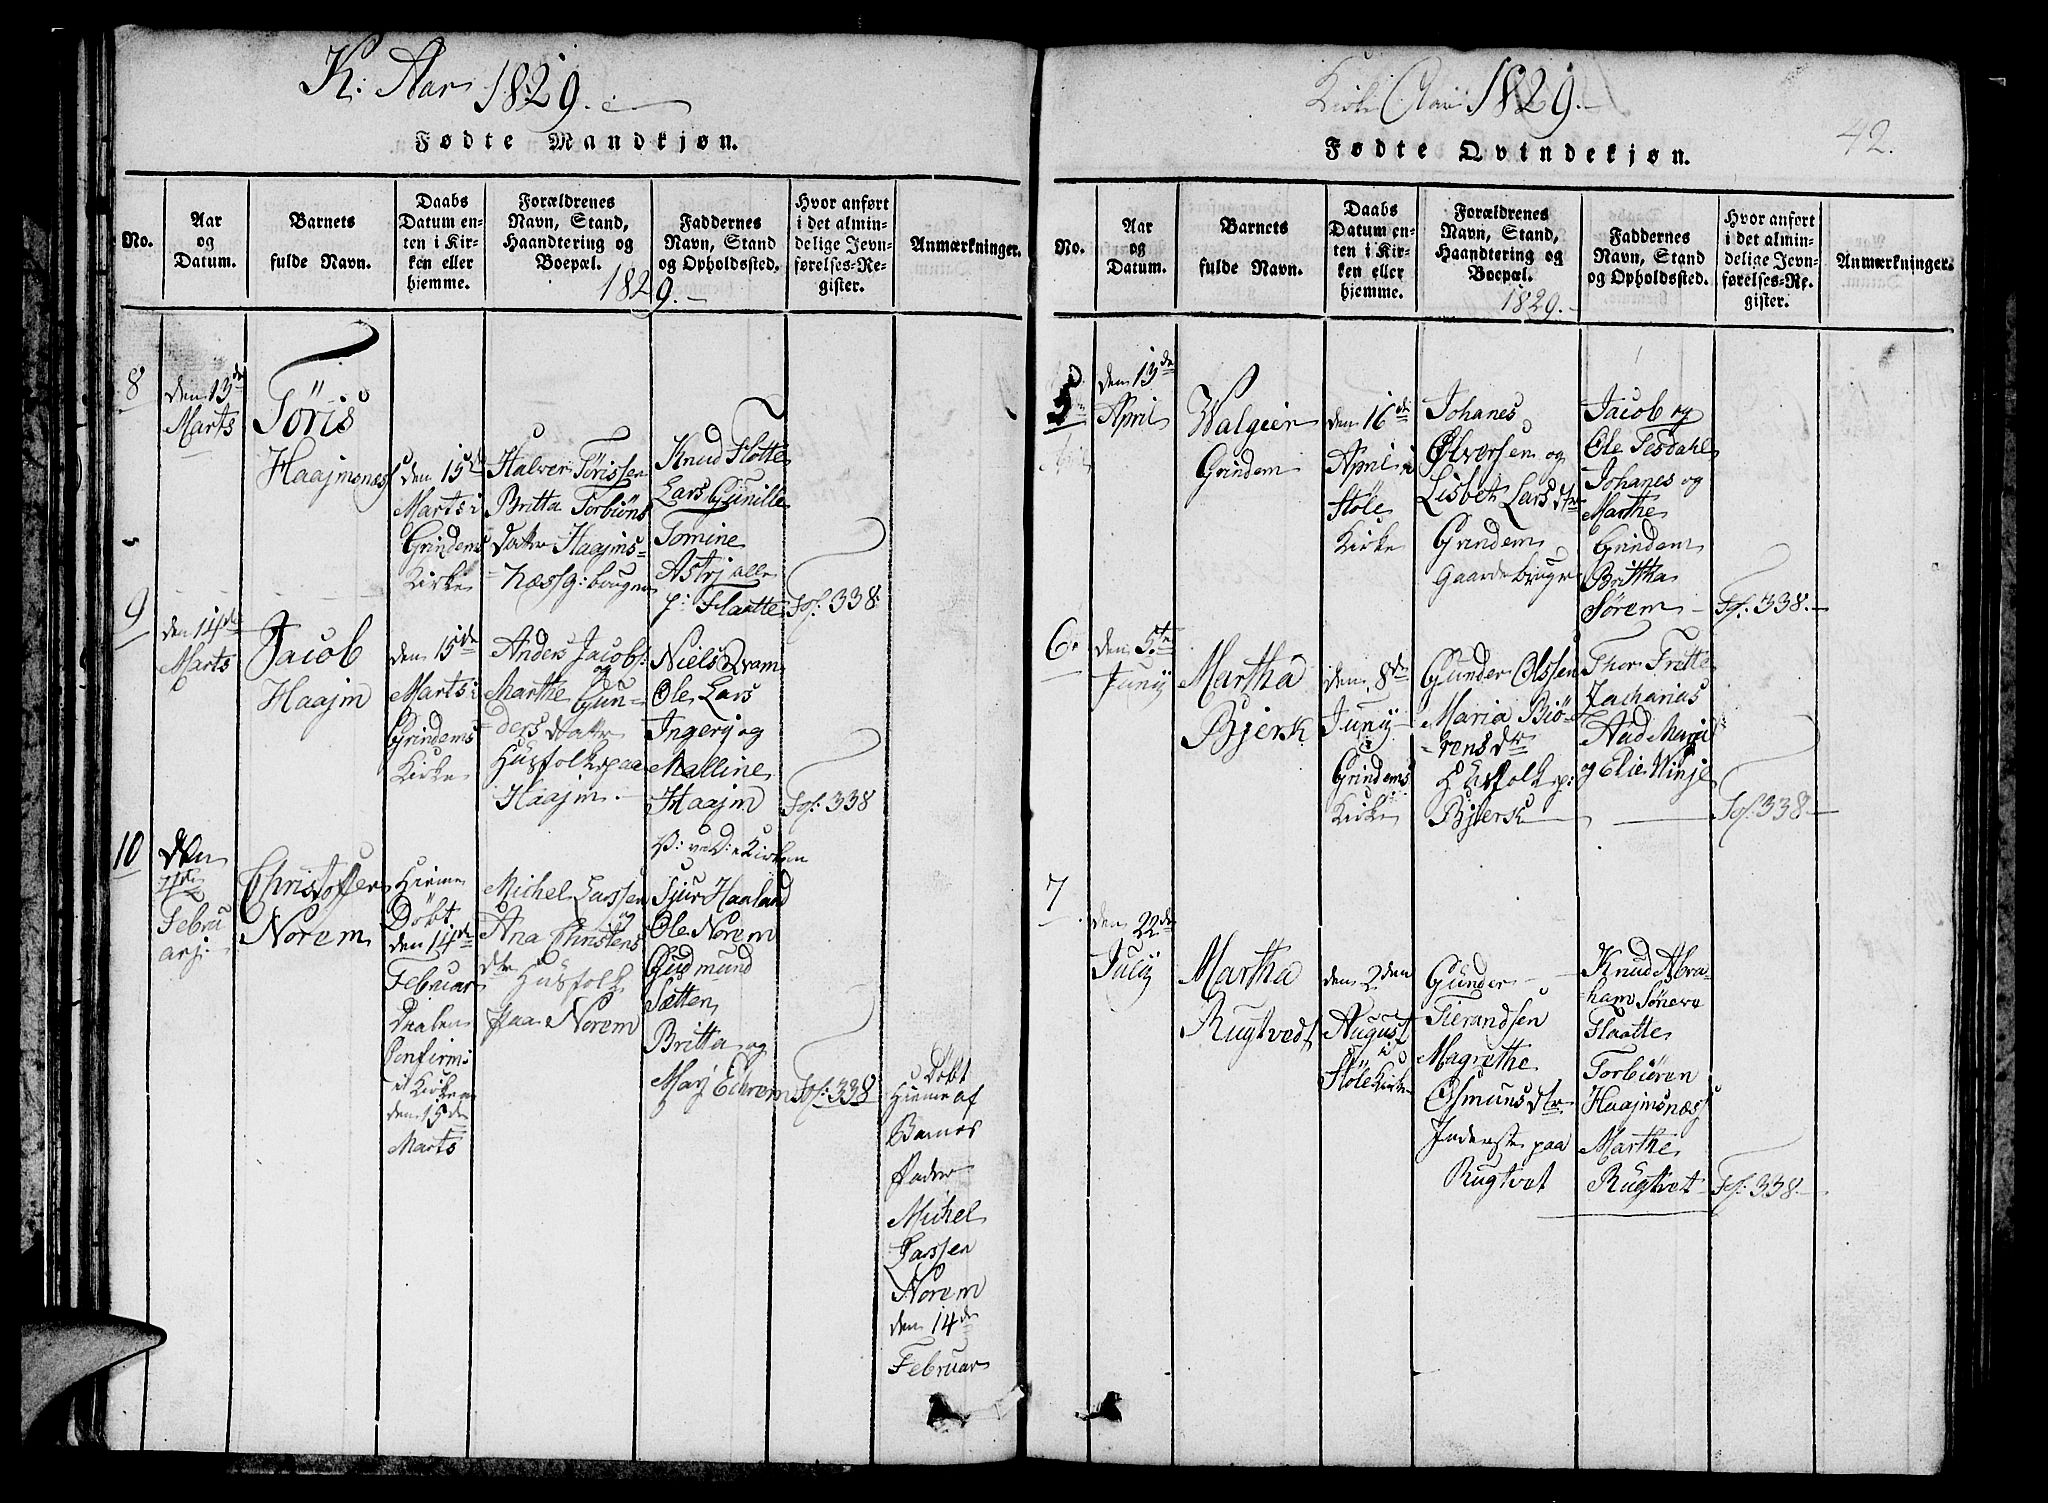 K: Aar 1829.
Fødte Mandkjøn.
No.
Aar
og
Datum.
Barnets
fulde Navn.
Daabs
Datum en-
ten i Kir-
ken eller
hjemme.
Forældrenes
Navn, Stand,
Haandtering og
Boepæl.
Faddernes
Navn, Stand
og Opholdssted.
Hvor anført
i det almin-
delige Jevn-
førelses-Re-
gister.
Anmærkninger.
1829.
8
den 13de
Marts
Töris
Haajmsnæs
den 15de
Marts i
Grindems
Kirke
Halver Törissen
Britta Torbiöns
Dattr Haajms-
næs g: bruger
Knud Flotte
Lars Gunille
Tomine
Astrj alle
p: Flaatte
Fol: 338
9
den 14de
Marts
Jacob
Haajm
den 15de
Marts i
Grindems
Kirke
Anders Jacobs:
og
Marthe Gun-
ders Dattr
Husfolk paa
Haajm.
Niels Qvam
Ole Lars
Ingerj og
Malline
Haajm
Fol: 338
10
Den
Febru
arj:
Christoffer
Norem
Hieme
Döbt
den 14de
Februar
Daaben
Confirm:
i Kirken
den 15de
Marts
Michel Larssen
og
Ana Christens
dtr Husfolk
paa Norem
Sjur Haaland
Ole Norem
Gudmund
Sætten
Britta og
Marj Echrem
Fol: 338
Döbt
Hieme af
Barnes
Fader
Michel
Larssen
Norem
den 14de
Februar
Kirke Aar 1829.
42.
Fødte Qvindekjøn.
No.
Aar
og
Datum.
Barnets
fulde Navn.
Daabs
Datum en-
ten i Kir-
ken eller
hjemme.
Forældrenes
Navn, Stand,
Haandtering og
Boepæl.
Faddernes
Navn, Stand
og Opholdssted.
Hvor anført
i det almin-
delige Jevn-
førelses-Re-
gister.
Anmærkninger.
1829.
5
den 13de
April
Walgier
Grindem
den 16de
April i
Støle
Kirke
Johanes
Ølversen og
Lisbet Lars dtr
Grindem
Gaardebruger
Jacob og
Ole Tesdahl
Johanes og
Marthe
Grindem
Brittha
Sörem
Fol: 338.
6.
den 5te
Junij
Martha
Bjerk
den 8de
Junij
i
Grindems
Kirke
Gunder Olssen
Maria Biö-
rens dr
Husfolk p:
Bjerk
Thor Frette
Zacharias
Aad Mari
og Elie Winje
Fol: 338
7
den 22de
Julij
Martha
Rugtvedt
den 2den
August
i
Støle Kirke
Gunder
Tierandsen
Magrethe
Osmunds dtr
Inderste paa
Rugtvet
Knud Abra-
ham Söneva
Flaatte
Torbiören
Haajmsnæs
Marthe
Rugtvet
Fol: 338.